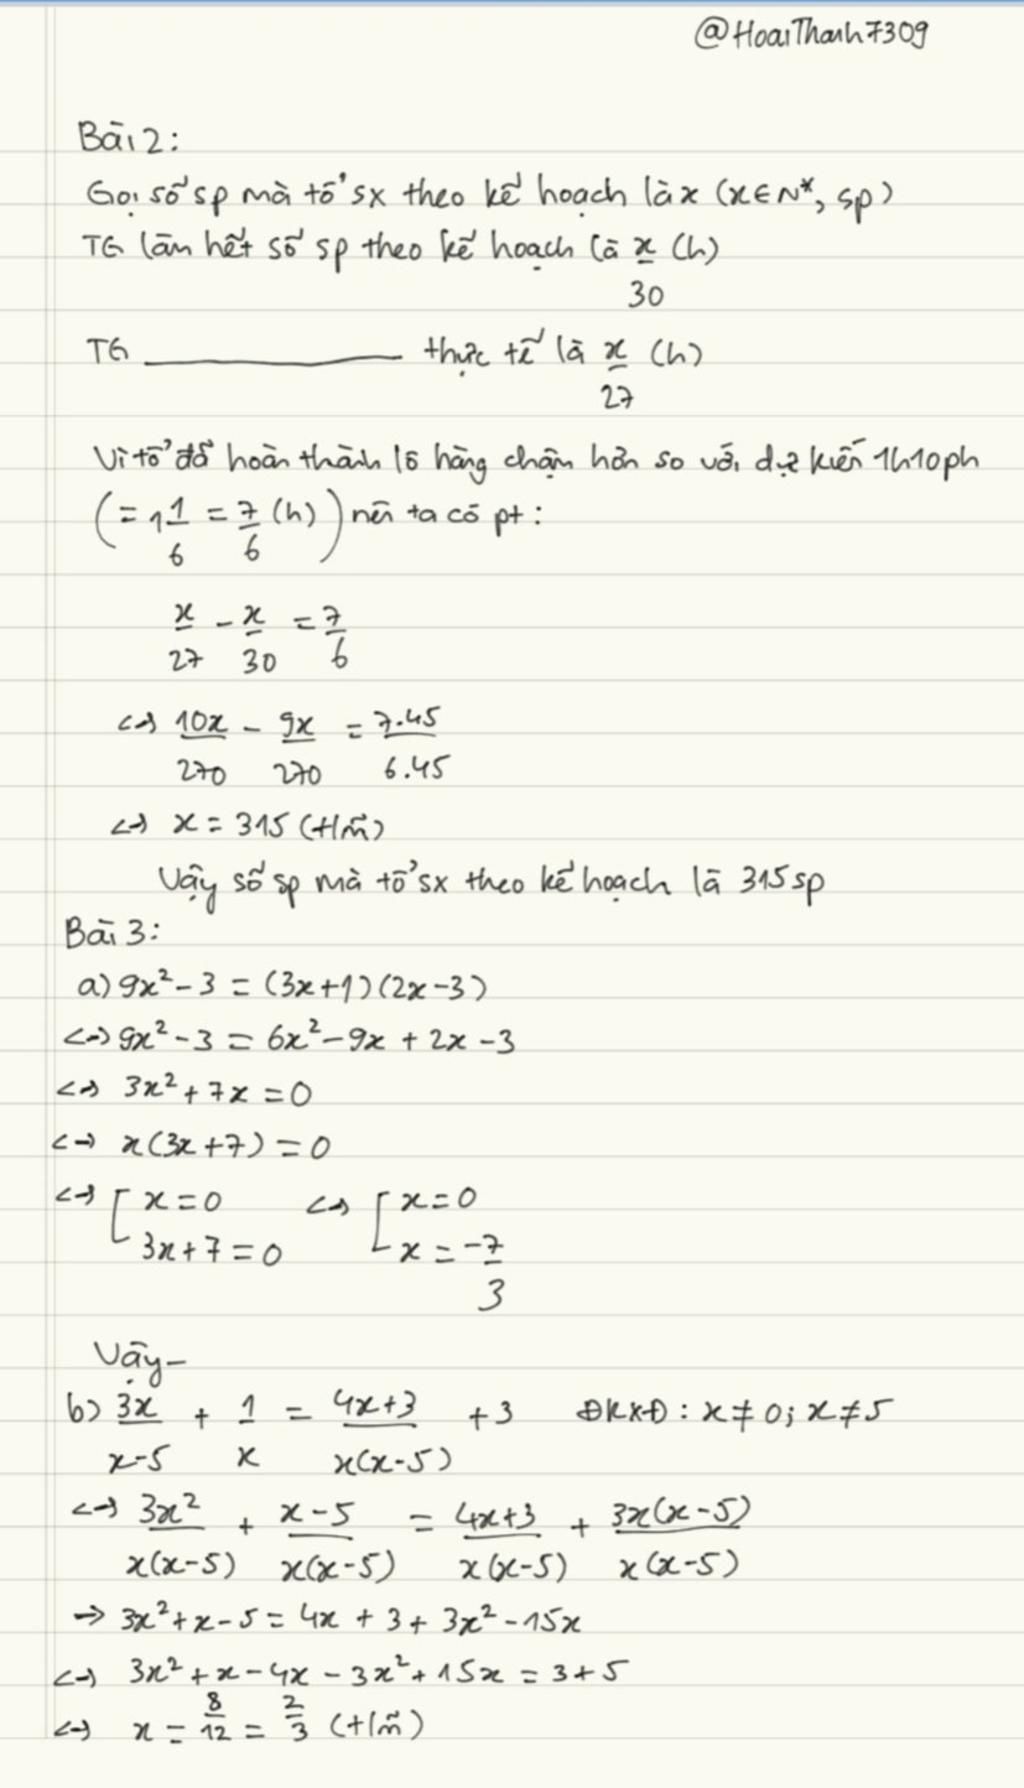 @HoaiThanh7309
Bài 2:
Gọi số sp mà tổ sx theo kế hoạch là x (x ∈ N*, sp)
TG làm hết số sp theo kế hoạch là x/30 (h)
TG ———— thực tế là x/27 (h)
Vì tổ đã hoàn thành lô hàng chậm hơn so với dự kiến 1h10ph
(= 1 1/6 = 7/6 (h)) nên ta có pt:
x/27 - x/30 = 7/6
<=> 10x/270 - 9x/270 = 7.45/6.45
<=> x = 315 (t/m)
Vậy số sp mà tổ sx theo kế hoạch là 315 sp
Bài 3:
a) 9x² - 3 = (3x+1)(2x-3)
<=> 9x² - 3 = 6x² - 9x + 2x - 3
<=> 3x² + 7x = 0
<=> x(3x+7) = 0
<=> [ x = 0 <=> [ x = 0
3x+7 = 0 x = -7/3
Vậy -
b) 3x/(x-5) + 1/x = (4x+3)/(x(x-5)) + 3 ĐKXĐ: x ≠ 0; x ≠ 5
<=> 3x²/(x(x-5)) + (x-5)/(x(x-5)) = (4x+3)/(x(x-5)) + 3x(x-5)/(x(x-5))
=> 3x² + x - 5 = 4x + 3 + 3x² - 15x
<=> 3x² + x - 4x - 3x² + 15x = 3 + 5
<=> x = 8/12 = 2/3 (t/m)